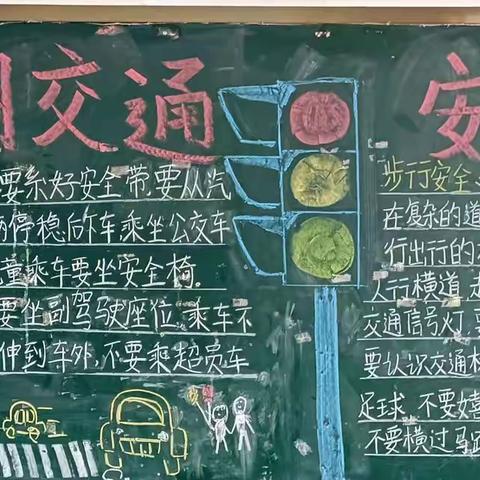 交通 安
要系好安全带,要从汽
停稳后下车乘坐公交车
童乘车要坐安全椅.
要坐副驾驶座位,乘车不
伸到车外,不要乘超员车
步行安全:
在复杂的道
行出行的
人行横道,走
交通信号灯,
要认识交通
足球,不要嬉
不要横过马路